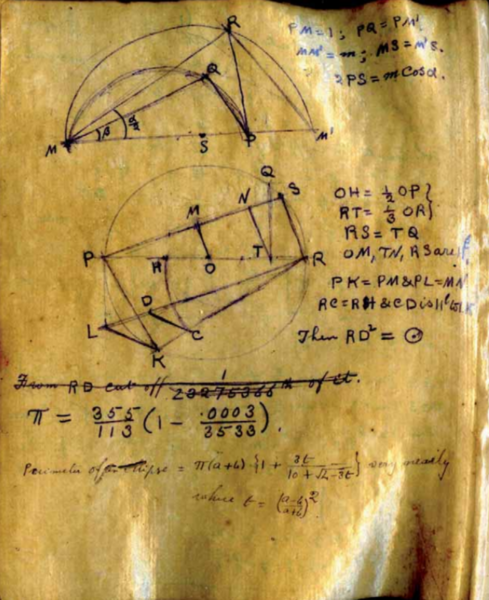 PM = 1; PQ = PM'
MM' = m; MS = M'S.
2PS = m Cos α.
R
Q
M β α/2 S P M'
Q
M N S
P H O T R
D
L C
K
OH = 1/2 OP}
RT = 1/3 OR}
RS = TQ
OM, TN, RS are ∥l
PK = PM & PL = MN
RC = RH & CD is ∥l to LK
Then RD² = ⊙
From RD cut off 1/ th of it.
π = 355/113 (1 - .0003/3533).
Perimeter of an ellipse = π(a+b) {1 + 3t/(10 + √4-3t)} very nearly
where t = (a-b/a+b)²